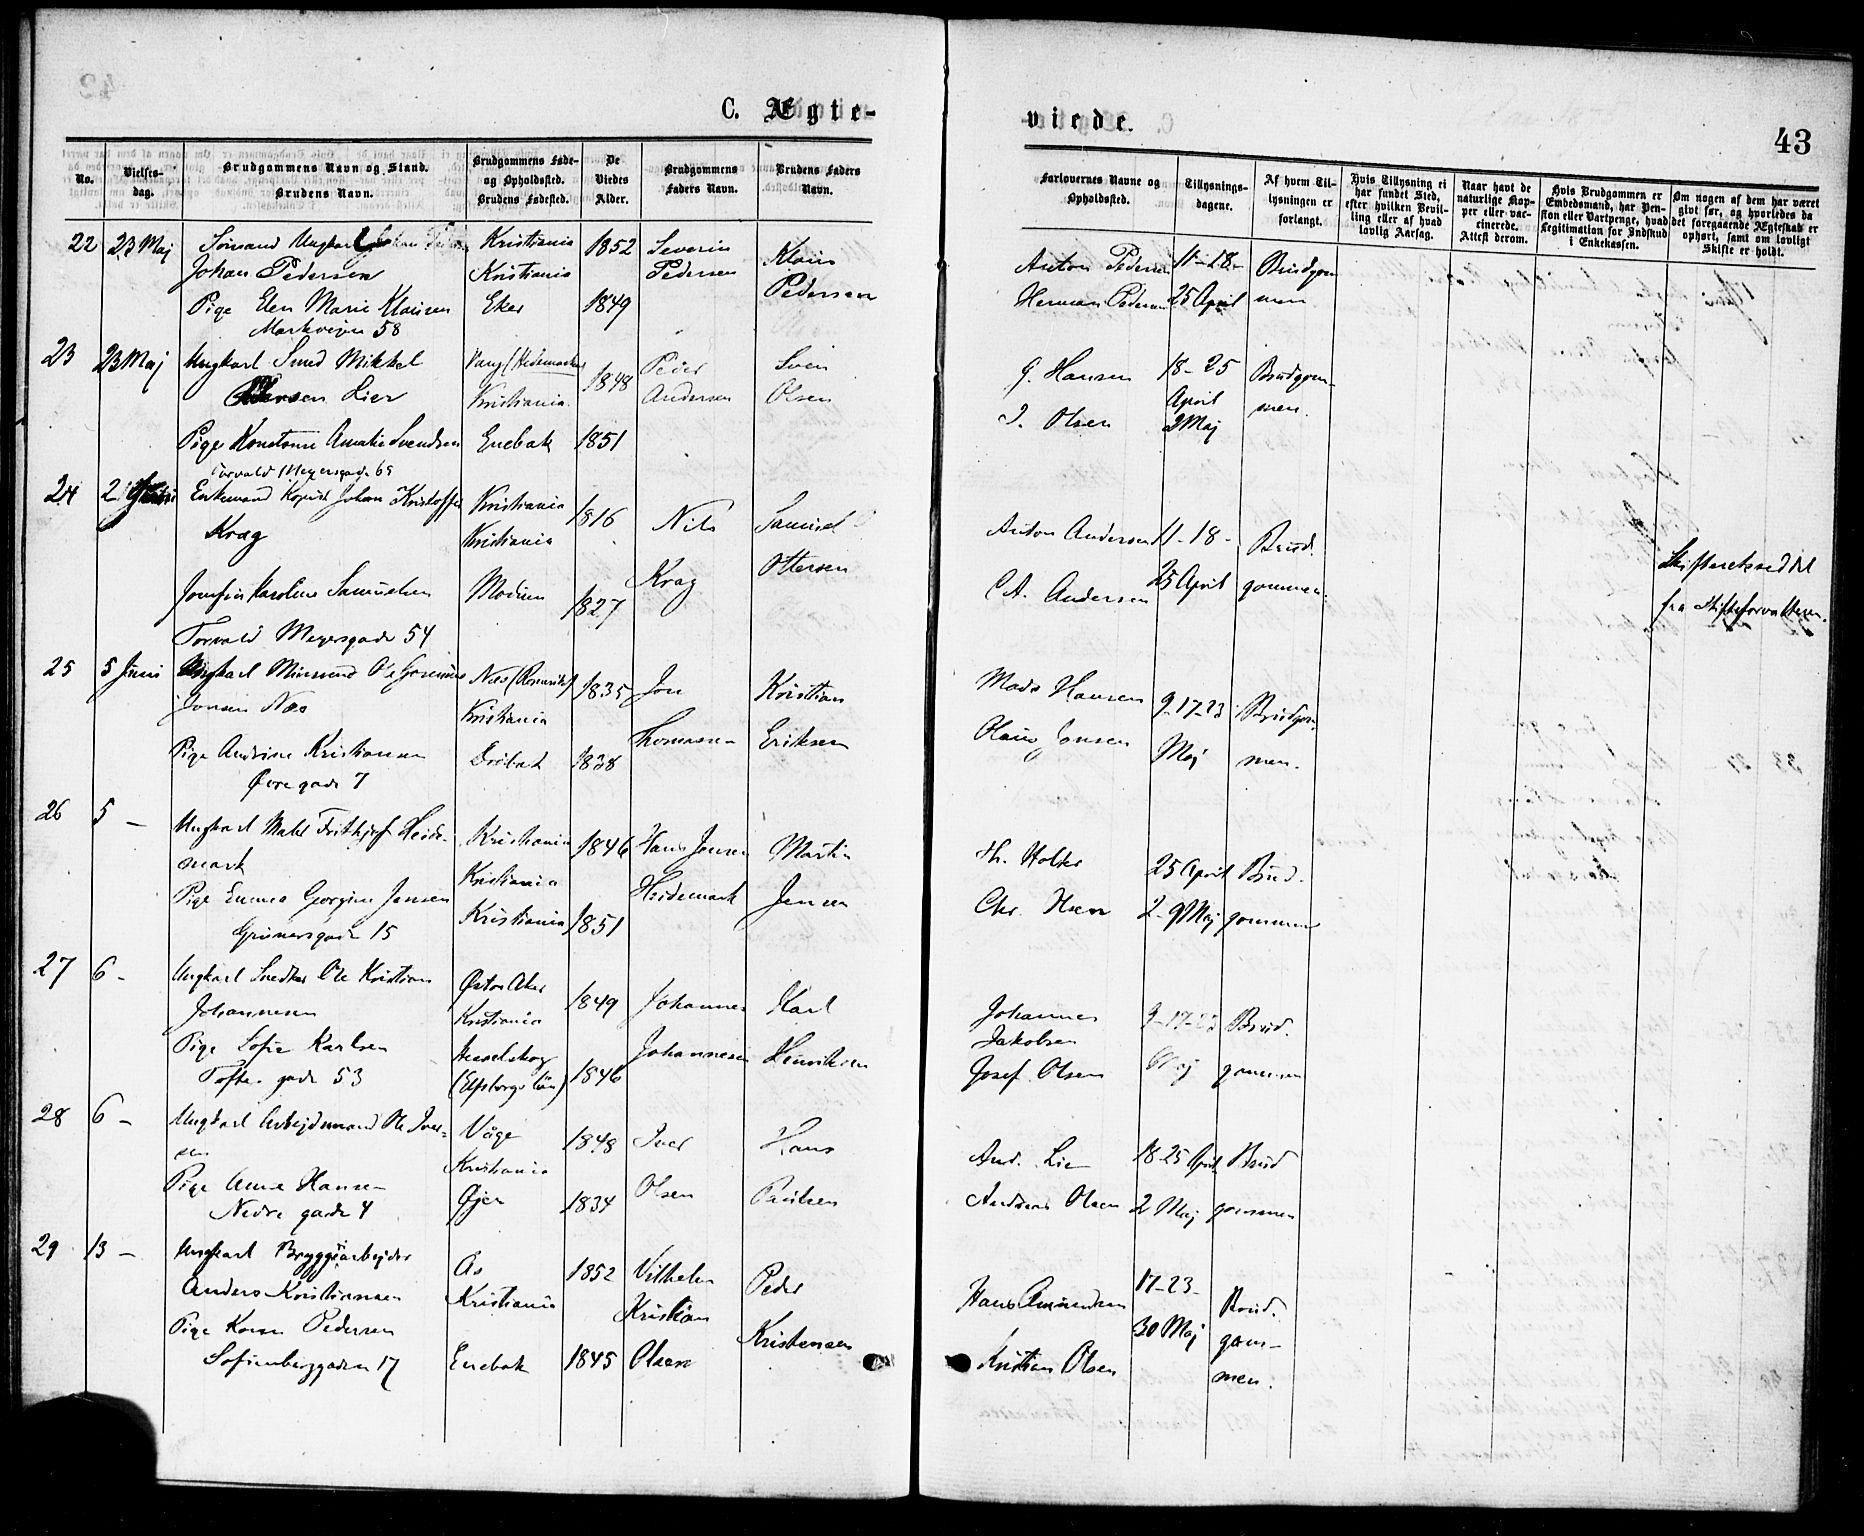 C. Ægte-
viede.
43
No.
Vielses-
dag.
Brudgommens Navn og Stand.
Brudens Navn.
Brudgommens Føde-
og Opholdssted.
Brudens Fødested.
De
Viedes
Alder.
Brudgommens
Faders Navn.
Brudens Faders
Navn.
Forlovernes Navne og
Opholdssted.
Tillysnings-
dagene.
Af hvem Til-
lysningen er
forlangt.
Hvis Tillysning ei
har fundet Sted,
efter hvilken Bevil-
ling eller af hvad
lovlig Aarsag.
Naar havt de
naturlige Kop-
per eller vac-
cinerede.
Attest derom.
Hvis Brudgommen er
Embedsmand, har Pen-
sion eller Vartpenge, hvad
Legitimation for Indskud
i Enkekassen.
Om nogen af dem har været
givt før, og hvorledes da
det foregaaende Ægteskab er
ophørt, samt om lovligt
Skifte er holdt.
22 23 Maj Sömand Ungkarl
Johan Pedersen
Pige Elen Marie Klausen
Markveien 58
Kristiania
Kristiania
Eker
1852
1849
Severin
Pedersen
Klaus
Pedersen
Anton Pedersen
Herman Pedersen
11-18-
25 April
Brudgom
men
23 23 Maj Ungkarl Smed Mikkel
Lier
Pige Konstanse Amalie Svendsen
Torvald Meyersgade 65
Vang (Hedemarken
Kristiania.
Enebak
1848
1851
Peder
Andersen
Sven
Olsen
G. Hansen
Olsen
18-25
April
2 Maj
Brudgom-
men.
24 2 Enkemand Kopist Johan Kristoffer
Krag
Josefine Karoline Samuelsen
Torvald Meyersgade 54
Kristiania
Kristiania
Modum
1816
1827
Nils
Krag
Samuel
Ottersen
Anton Andersen
C.A. Andersen
11-18-
25 April
Brud-
gommen.
Skifteretsseddel
fra Skifteforvalteren.
25 5 Juni Ungkarl
Jonsen Næs
Pige Andrine Kristiansen
Øvregade 7
Næs (Romerike)
Kristiania
Dröbak
1835
1838
Jon
Thomassen
Kristian
Eriksen
Mads Hansen
Jonsen
9-17-23
Maj
Brudgom-
men.
26 5 - Ungkarl Maler Frithjof Heide-
mark
Pige Emma Georgine Jensen
Grünersgade 15
Kristiania
Kristiania
Kristiania
1846
1851
Hans Jensen
Heidemark
Martin
Jensen
Th. Holter
Chr.
25 April
2-9 Maj
Brud-
gommen
27 6 - Ungkarl Snedker Ole Kristian
Johannesen
Pige Sofie Karlsen
Toftes gade 53
Østre Aker
Kristiania
(Elfsborgs län)
1849
1846
Johannes
Johannesen
Karl
Henriksen
Johannes
Jakobsen
Josef Olsen
9-17-23
Maj
Brud-
gommen
28 6 - Ungkarl Arbejdsmand Ole Iver-
sen
Pige Anne Hansen
Nedre gade 4
Våge
Kristiania
Øjer
1848
1834
Iver
Olsen
Hans
Paulsen
And. Lie
Andreas Olsen
18-25 April
2 Maj
Brud
gommen
29 13 - Ungkarl Bryggeriarbejder
Anders Kristiansen
Pige Karen Pedersen
Sofienberggaden 17
Ås
Kristiania
Enebak
1852
1845
Vilhelm
Kristian
Olsen
Peder
Kristensen
Hans Amundsen
Kristian Olsen
17-23-
30 Maj
Brud-
gom-
men.